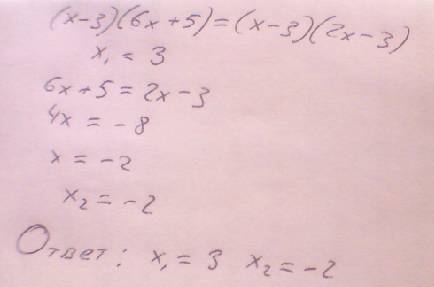 (x-3)(6x+5)=(x-3)(2x-3)
x₁ = 3
6x+5=2x-3
4x = -8
x = -2
x₂ = -2
Ответ: x₁ = 3 x₂ = -2